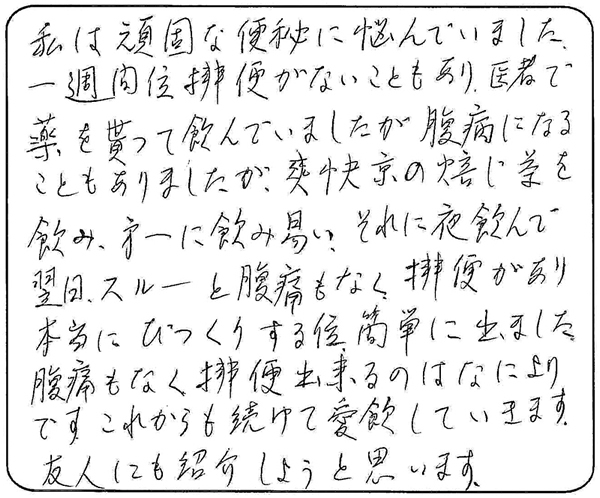 私は頑固な便秘に悩んでいました、
一週間位排便がないこともあり、医者で
薬を貰って飲んでいましたが腹病になる
こともありましたが、爽快京の焙じ茶を
飲み、才一に飲み易い、それに夜飲んで
翌日、スルーと腹痛もなく、排便があり
本当にびっくりする位、簡単に出ました、
腹痛もなく、排便出来るのはなにより
です、これからも続けて愛飲していきます、
友人にも紹介しようと思います、